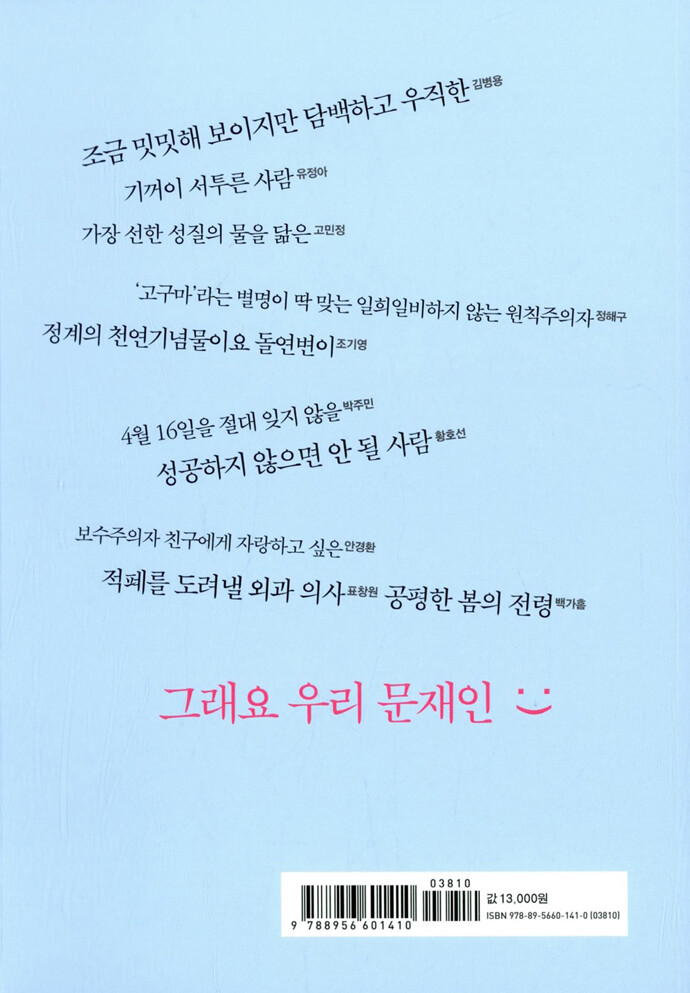 조금 밋밋해 보이지만 담백하고 우직한 김병용
기꺼이 서투른 사람 유정아
가장 선한 성질의 물을 닮은 고민정
‘고구마’라는 별명이 딱 맞는 일희일비하지 않는 원칙주의자 정해구
정계의 천연기념물이요 돌연변이 조기영
4월 16일을 절대 잊지 않을 박주민
성공하지 않으면 안 될 사람 황호선
보수주의자 친구에게 자랑하고 싶은 안경환
적폐를 도려낼 외과 의사 표창원 공평한 봄의 전령 백가흠
그래요 우리 문재인 :)
03810
값 13,000원
ISBN 978-89-5660-141-0 (03810)
9 788956 601410